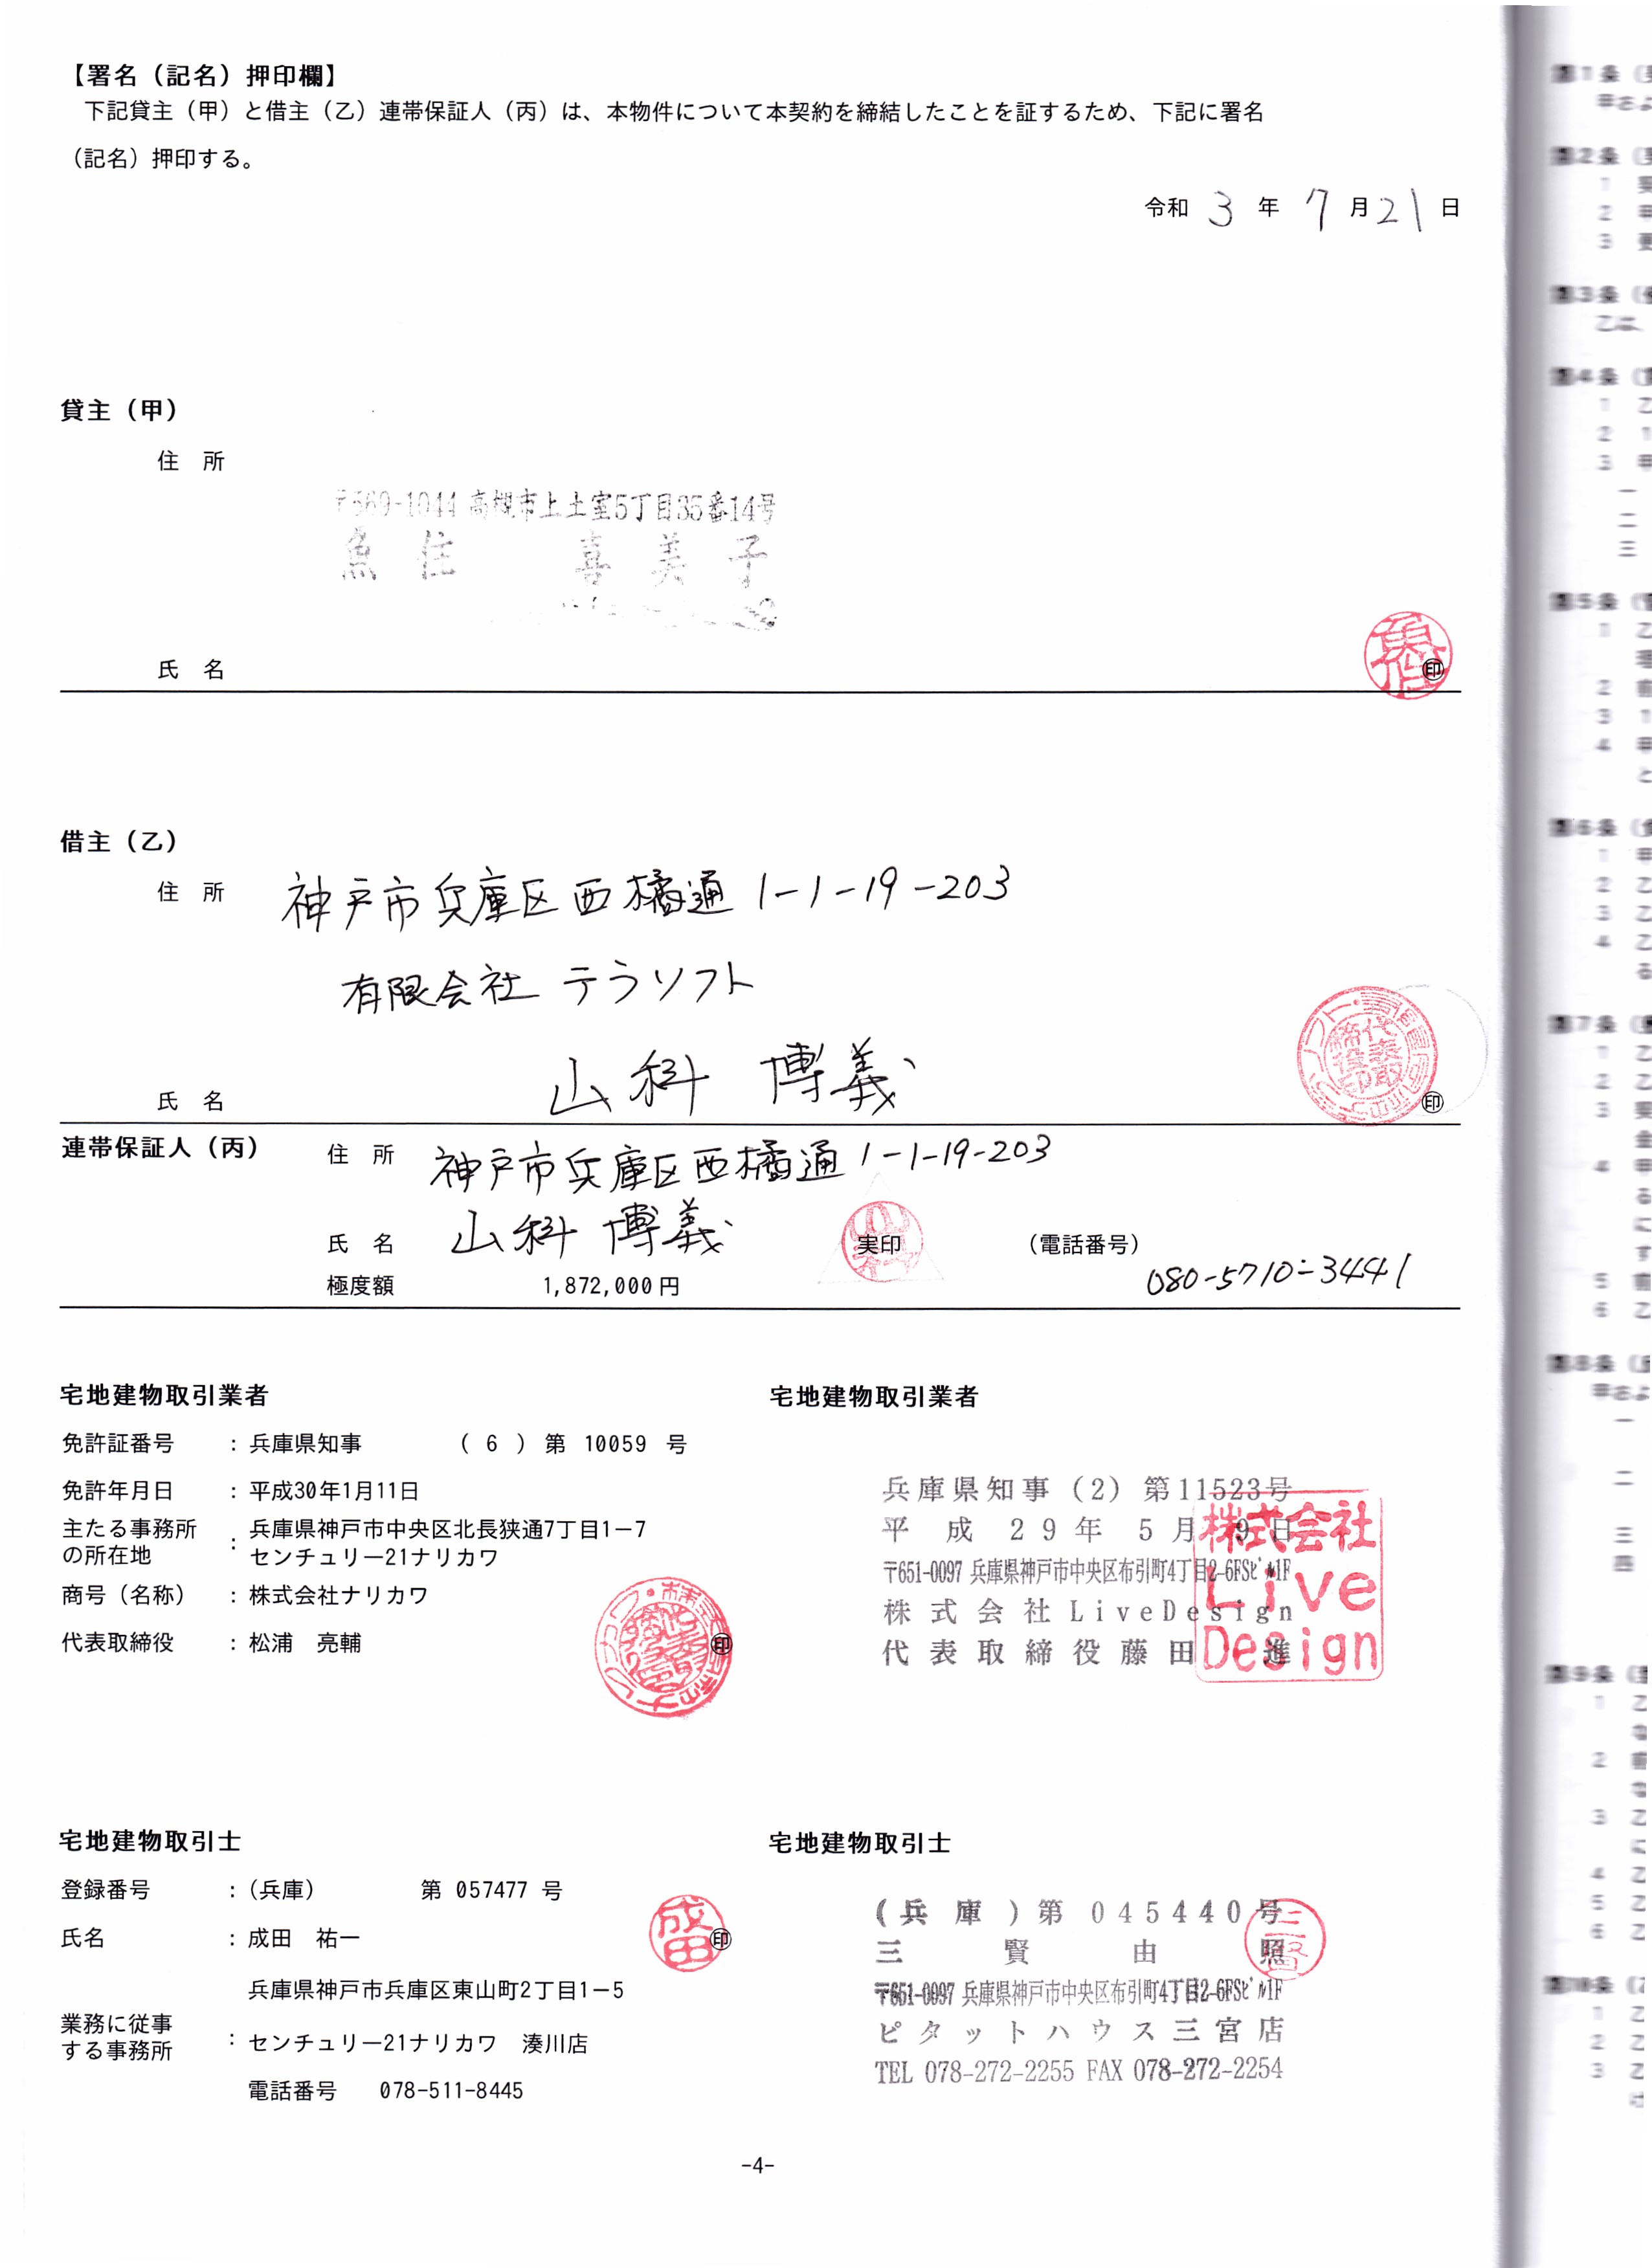 【署名（記名）押印欄】
下記貸主（甲）と借主（乙）連帯保証人（丙）は、本物件について本契約を締結したことを証するため、下記に署名
（記名）押印する。
令和 3 年 7 月 21 日
貸主（甲）
住 所
〒569-1044 高槻市上土室5丁目35番14号
魚 住 喜 美 子
氏 名 ㊞
魚住
借主（乙）
住 所 神戸市兵庫区西橘通 1-1-19-203
有限会社 テラソフト
氏 名 山科 博義 ㊞
代表取締役印
連帯保証人（丙） 住 所 神戸市兵庫区西橘通 1-1-19-203
氏 名 山科 博義 実印 （電話番号） 080-5710-3441
極度額 1,872,000 円
宅地建物取引業者
免許証番号 ：兵庫県知事 （ 6 ）第 10059 号
免許年月日 ：平成30年1月11日
主たる事務所の所在地 ：兵庫県神戸市中央区北長狭通7丁目1－7
センチュリー21ナリカワ
商号（名称） ：株式会社ナリカワ
代表取締役 ：松浦 亮輔 ㊞
宅地建物取引業者
兵庫県知事（2）第11523号
平成29年5月9日
〒651-0097 兵庫県神戸市中央区布引町4丁目2-6FSﾋﾞﾙ1F
株式会社LiveDesign
代表取締役藤田 進
株式会社
Live
Design
宅地建物取引士
登録番号 ：（兵庫） 第 057477 号
氏名 ：成田 祐一 ㊞
成田
兵庫県神戸市兵庫区東山町2丁目1－5
業務に従事する事務所 ：センチュリー21ナリカワ 湊川店
電話番号 078-511-8445
宅地建物取引士
（兵庫）第045440号
三賢由照
三賢
〒651-0097 兵庫県神戸市中央区布引町4丁目2-6FSﾋﾞﾙ1F
ピタットハウス三宮店
TEL 078-272-2255 FAX 078-272-2254
-4-